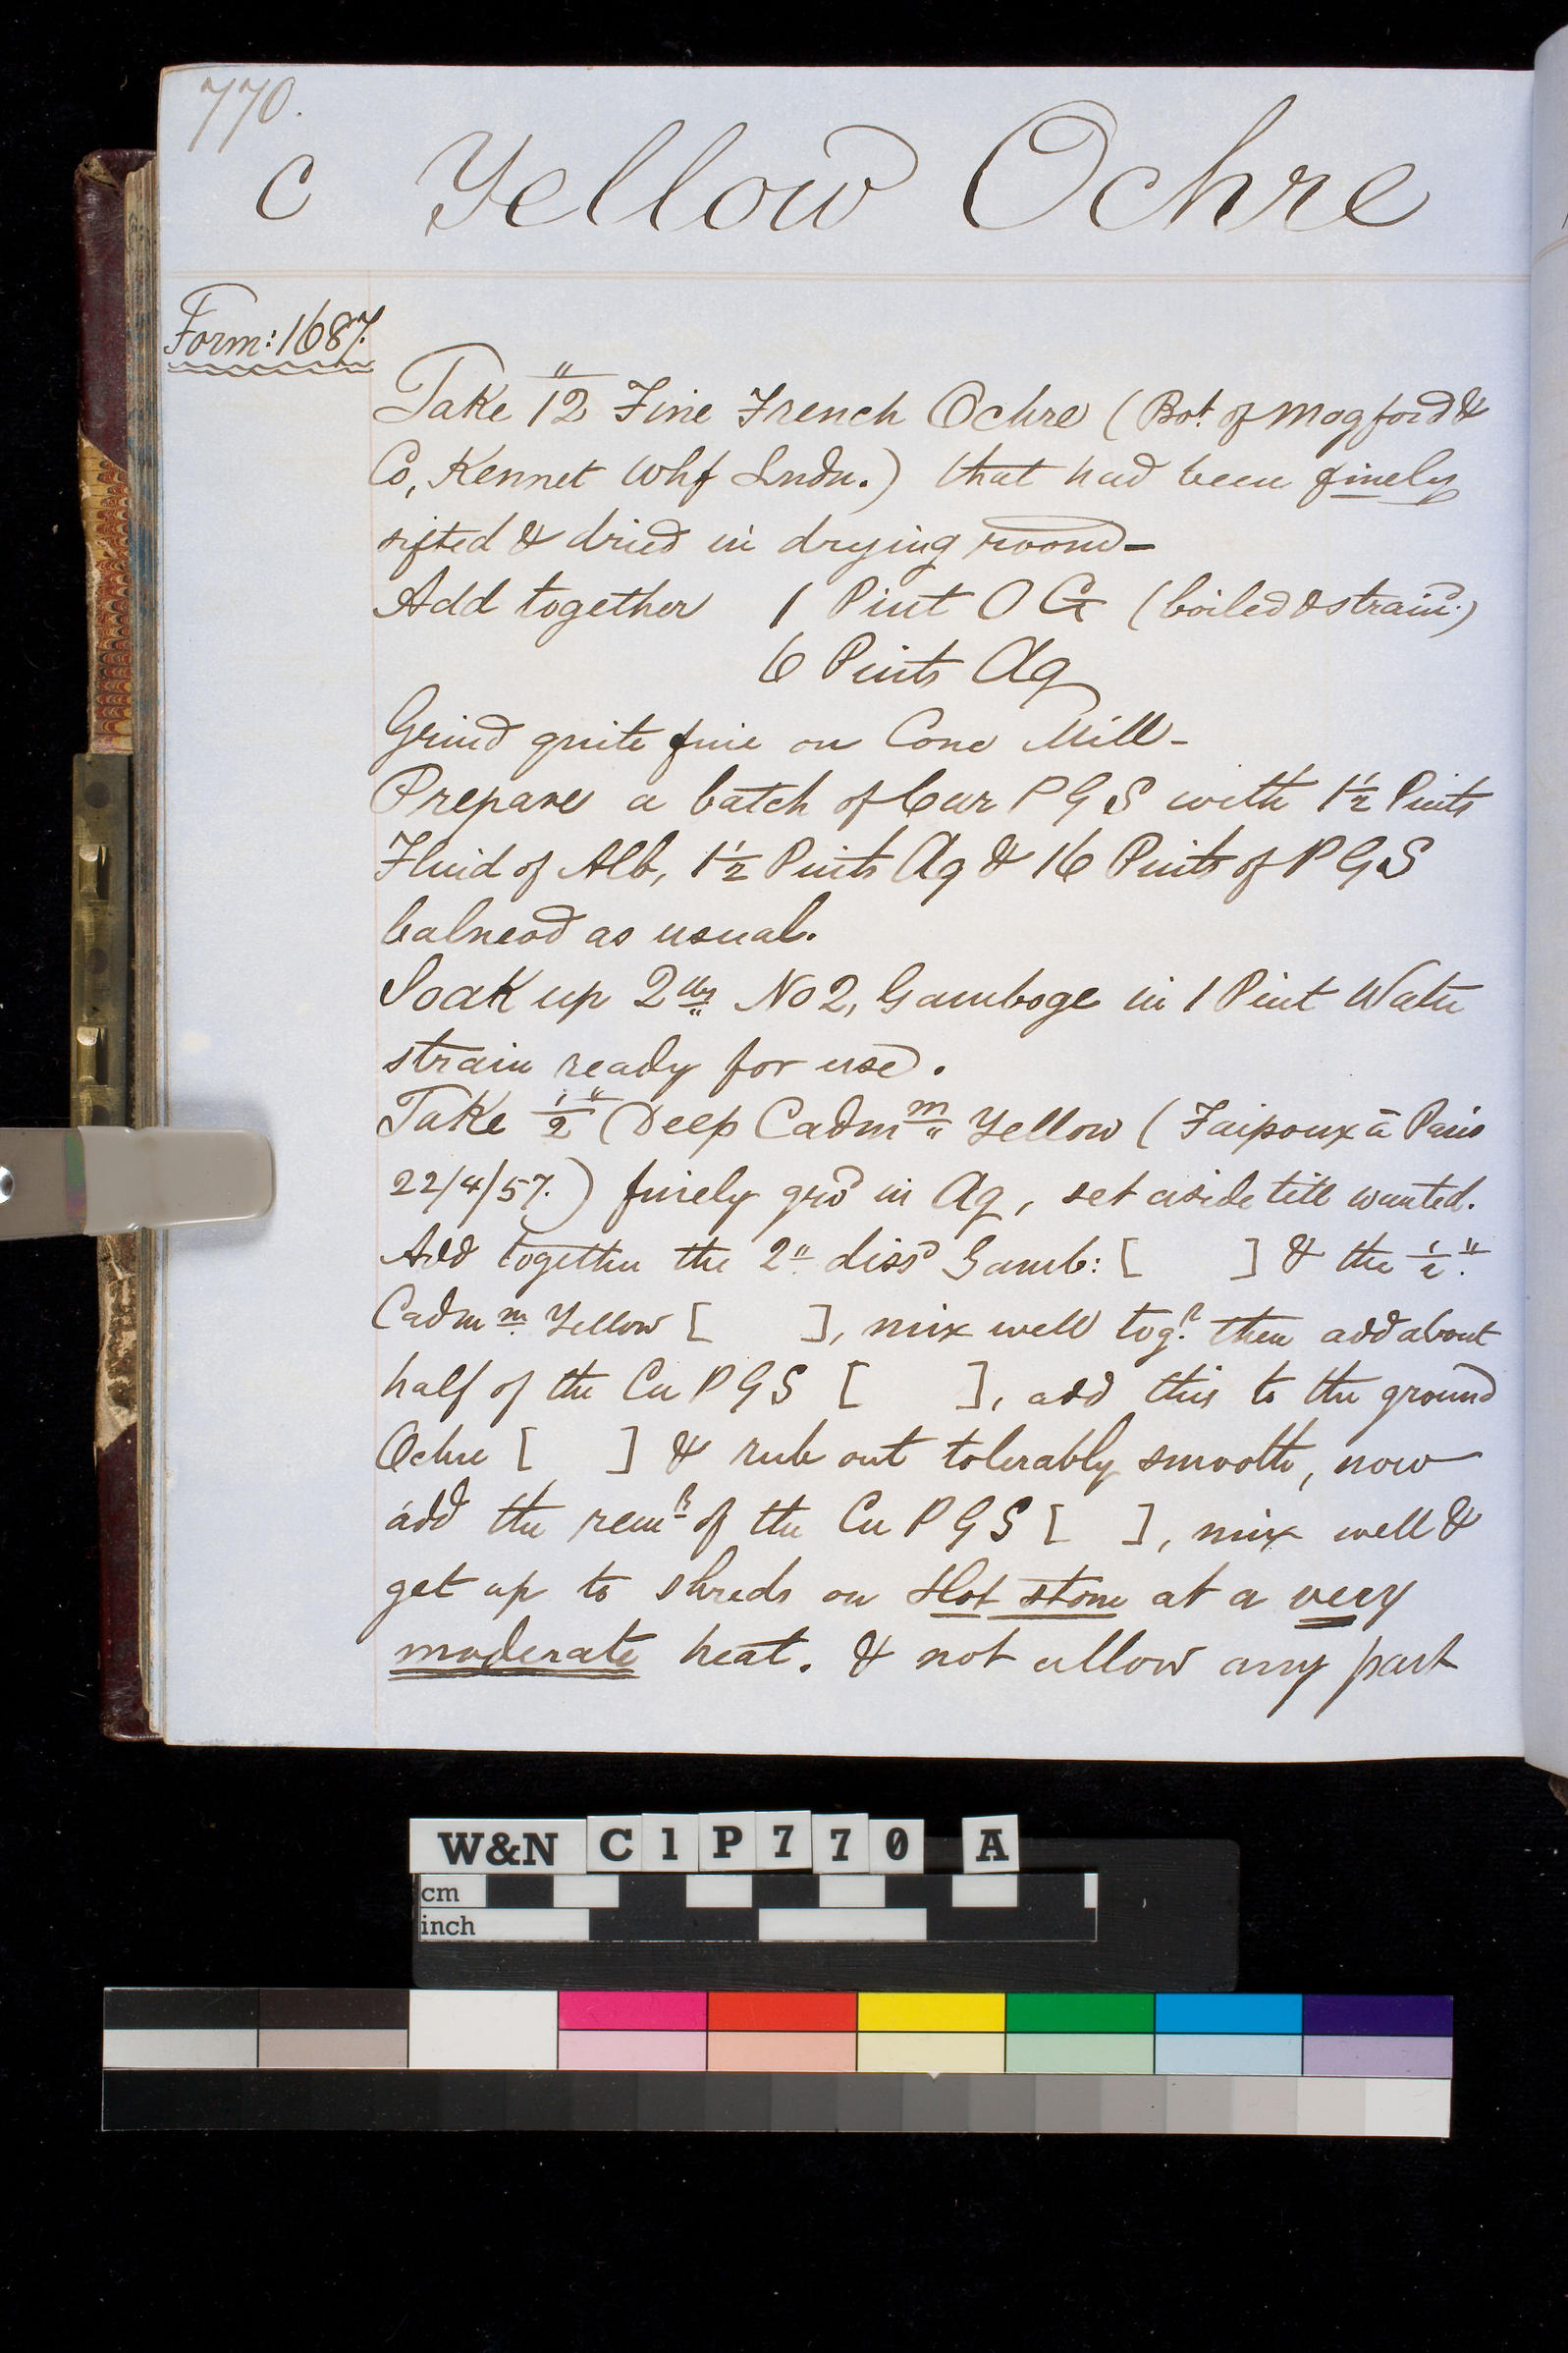 770.
C Yellow Ochre
Form: 1687.
Take 12" Fine French Ochre (Bot. of Mogford &
Co, Kennet Whf Lndn.) that had been finely
sifted & dried in drying room—
Add together 1 Pint O G (boiled & straind.)
6 Pints Aq
Grind quite fine on Cone Mill—
Prepare a batch of Cur P G S with 1½ Pints
Fluid of Alb, 1½ Pints Aq & 16 Pints of P G S
balneod as usual.
Soak up 2 lbs No 2, Gamboge in 1 Pint Water
strain ready for use.
Take ½" Deep Cadm m Yellow ( à Paris
22/4/57.) finely grd in Aq, set aside till wanted.
Add together the 2" dissd Gamb: [ ] & the ½"
Cadm m Yellow [ ], mix well togr. then add about
half of the Cu P G S [ ], add this to the ground
Ochre [ ] & rub out tolerably smooth, now
add the remr of the Cu P G S [ ], mix well &
get up to shreds on Hot stone at a very
moderate heat. & not allow any part
W&N C1P770 A
cm
inch